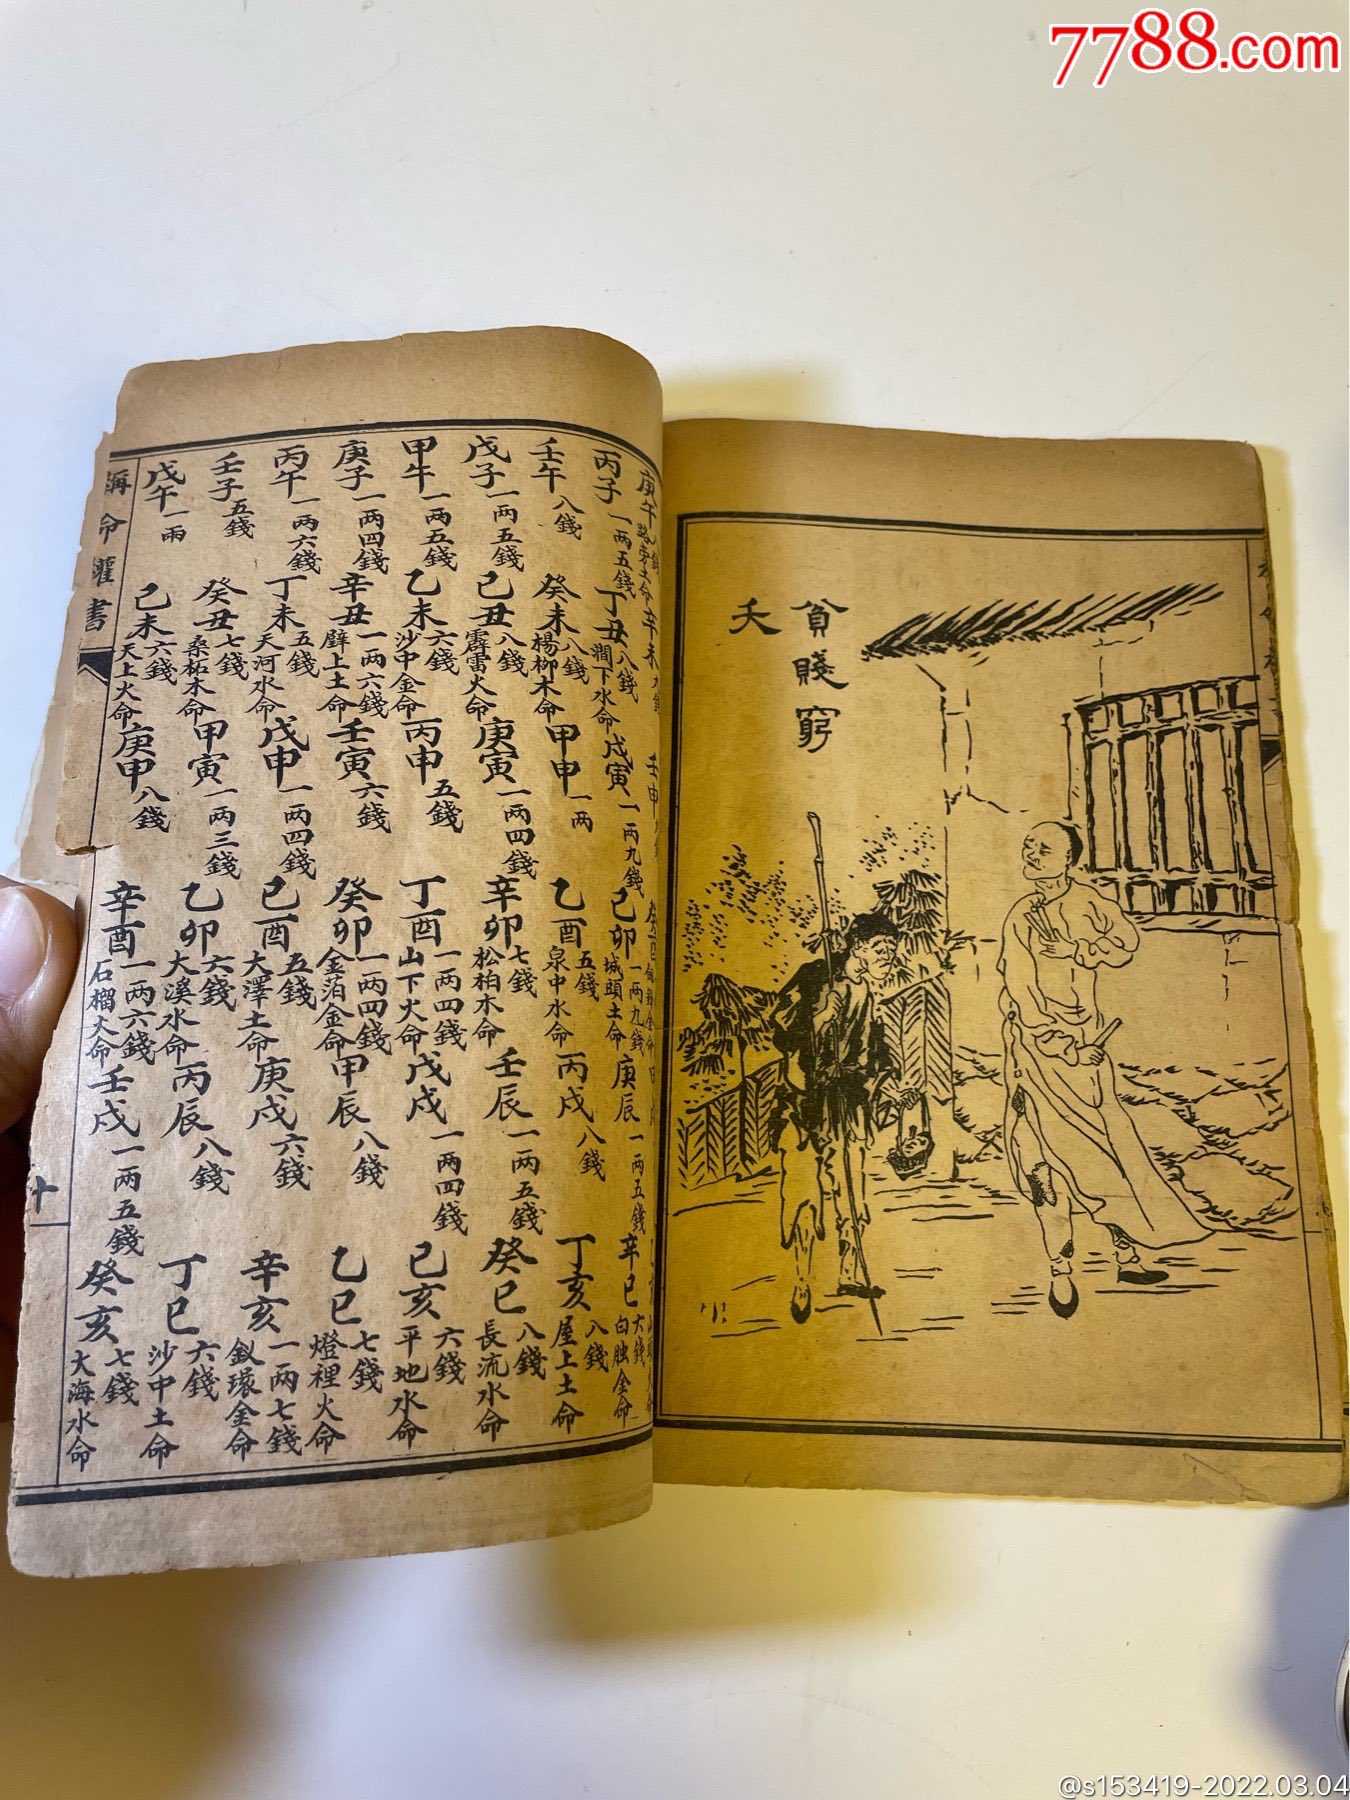 貧賤窮
夭
庚午 路旁土命 辛未 壬申
丙子 一两五錢 丁丑 八錢 澗下水命 戊寅 一两九錢 己卯 一两九錢 城頭土命 庚辰 一两五錢 辛巳 六錢 金命
壬午 八錢 癸未 八錢 楊柳木命 甲申 一两 乙酉 五錢 泉中水命 丙戌 八錢 丁亥 八錢 屋上土命
戊子 一两五錢 己丑 八錢 霹雷火命 庚寅 一两四錢 辛卯 七錢 松柏木命 壬辰 一两五錢 癸巳 八錢 長流水命
甲午 一两五錢 乙未 六錢 沙中金命 丙申 五錢 丁酉 一两四錢 山下火命 戊戌 一两四錢 己亥 六錢 平地水命
庚子 一两四錢 辛丑 一两六錢 壁上土命 壬寅 六錢 癸卯 一两四錢 金箔金命 甲辰 八錢 乙巳 七錢 燈裡火命
丙午 一两六錢 丁未 五錢 天河水命 戊申 一两四錢 己酉 五錢 大澤土命 庚戌 六錢 辛亥 一两七錢 釵環金命
壬子 五錢 癸丑 七錢 桑柘木命 甲寅 一两三錢 乙卯 六錢 大溪水命 丙辰 八錢 丁巳 六錢 沙中土命
戊午 一兩 己未 六錢 天上火命 庚申 八錢 辛酉 一两六錢 石榴火命 壬戌 一两五錢 癸亥 七錢 大海水命
稱命 書
十
7788.com
@s153419-2022.03.04